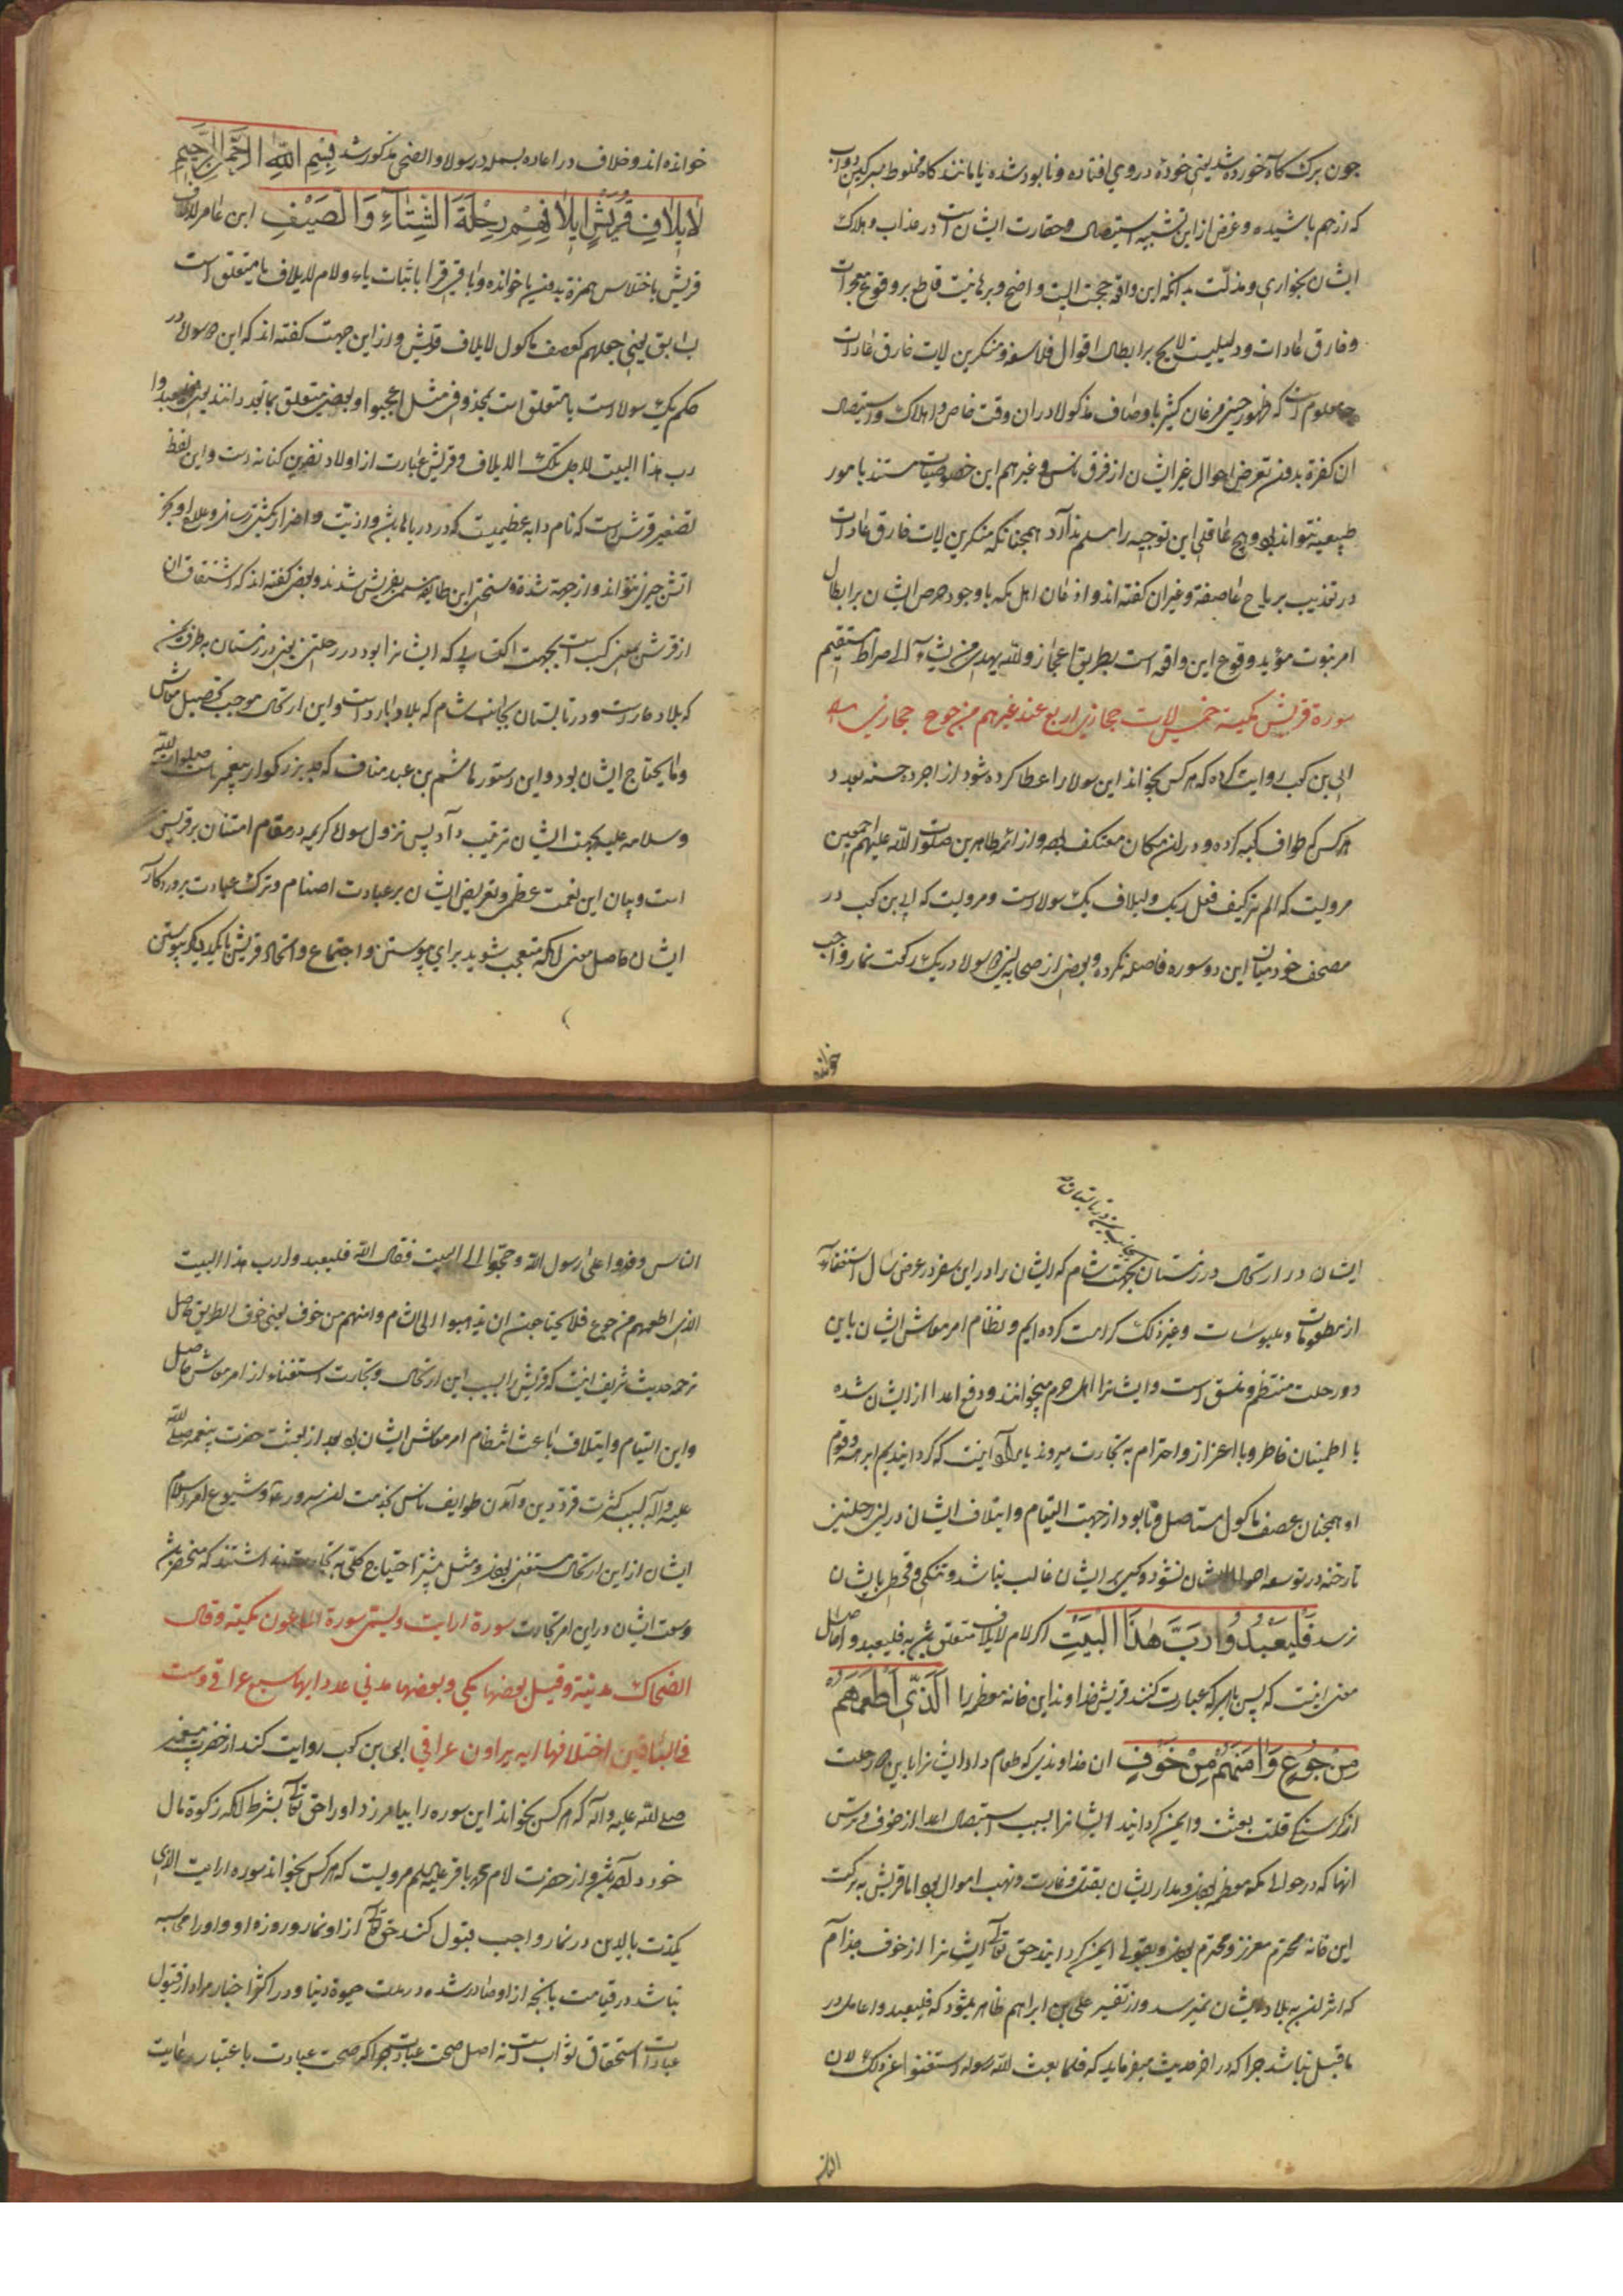 چون برک کاه خورده شد یعنی خوره در وی افتاده و نابود شده یا مانند کاه مخلوط بسرکین دواب
که از هم پاشیده و غرض ازین تشبیه استیصال و حقارت ایشانست در عذاب و هلاک
ایشان بخواری و مذلت بدانکه این واقعه حجت است واضح و برهانیست قاطع بر وقوع معجزات
و خارق عادات و دلیلیست لایح بر ابطال اقوال فلاسفه و منکرین لات خارق عادات
چه معلوم است که ظهور چنین مرغان کثیر باوصاف مذکوره در ان وقت خاص و اهلاک و استیصال
ان کفره بدون تعرض احوال غیر ایشان از فرق ناس و غیرهم این خصوصیات مستند بامور
طبیعیه نتواند بود و هیچ عاقلی این توجیه را مسلم ندارد همچنانکه منکرین لات خارق عادات
در تعذیب بریاح عاصفه و غیر ان کفته اند و اذعان اهل مکه با وجود حرص ایشان بر ابطال
امر نبوت مؤید وقوع این واقعه است بطریق اعجاز والله یهدی من یشاء الی صراط مستقیم
سورة قریش مکیة خمس ایات حجازی اربع عند غیرهم من جوع حجازی
ابی بن کعب روایت کرده که هر کس بخواند این سوره را عطا کرده شود از اجر ده حسنه بعدد
هر کس که طواف کعبه کرده و در ان مکان معتکف بوده و از ائمه طاهرین صلوات الله علیهم اجمعین
مرویست که الم تر کیف فعل ربک و لیلاف یک سوره است و مرویست که ابی بن کعب در
مصحف خود میان این دو سوره فاصله نکرده و بعضی از صحابه این دو سوره در یک رکعت نماز واجب
خوانده
خوانده اند و خلاف در اعاده بسمله در سوره والضحی مذکور شد بسم الله الرحمن الرحیم
لایلاف قریش ایلافهم رحلة الشتاء والصیف ابن عامر لالاف
قریش باختلاس همزه بدون یا خوانده و باقی قرا باثبات یاء و لام لایلاف یا متعلق است
بسابق یعنی جعلهم کعصف ماکول لایلاف قریش و ازین جهت کفته اند که این دو سوره در
حکم یک سوره است یا متعلق است بمحذوفی مثل اعجبوا و بعضی متعلق بمابعد دانند یعنی فلیعبدوا
رب هذا البیت لاجل تلک الایلاف و قریش عبارت از اولاد نضر بن کنانه است و این لفظ
تصغیر قرش است که نام دابه عظیمیست که در دریا باشد و اذیت و اضرار بکشتی رساند و علاج او بجز
اتش چیزی نتواند و از جهت شدة و سختی این طایفه مسمی بقریش شدند و بعضی کفته اند که اشتقاق ان
از قرش بمعنی کسب است بجهت اکتسابی که ایشانرا بود در رحلتین یعنی در زمستان بطرف یمن
که بلاد حار است و در تابستان بجانب شام که بلاد بارد است و این ارتحال موجب تحصیل معاش
و مایحتاج ایشان بود و این دستور هاشم بن عبد مناف که جد بزرکوار پیغمبر ماست صلوات الله
وسلامه علیه بجهت ایشان ترتیب داد پس نزول سوره کریمه در مقام امتنان بر قریش
است و بیان این نعمت عظمی و تعریض ایشان بر عبادت اصنام و ترک عبادت پروردکار
ایشان حاصل معنی انکه متعجب شوید برای پیوستن و اجتماع و اتحاد قریش با یکدیکر پیوستن
ایشان در ارتحال در زمستان بجهت شام که ایشان را در این سفر در عرض سال استغناء
از مطعومات و ملبوسات و غیر ذلک کرامت کرده ایم و نظام امر معاش ایشان باین
دو رحلت منتظم و منسق است و ایشانرا اهل حرم میخوانند و دفع اعدا از ایشان شده
با اطمینان خاطر و با اعزاز و احترام به تجارت میروند یا مراد آنست که کردانیدیم ابرهه و قوم
او همچنان عصف ماکول مستاصل و نابود از جهت التیام و ایتلاف ایشان در این رحلتین
تا رخنه در توسعه احوال ایشان نشود و کسی بر ایشان غالب نباشد و تنکی و قحطی بایشان
نرسد فلیعبدوا رب هذا البیت اکر لام لایلاف متعلق باشد به فلیعبدوا حاصل
معنی اینست که پس باید که عبادت کنند قریش خداوند این خانه معظم را الذی اطعمهم
من جوع وامنهم من خوف ان خداوندی که طعام داد ایشانرا باین دو رحلت
از کرسنکی قلت بعثت و ایمن کردانید ایشانرا بسبب استیصال اعدا از خوف و ترس
انها که در حوالی مکه معظمه بودند و مدار ایشان بقتل و غارت و نهب اموال بود اما قریش به برکت
این خانه محترم معزز و محترم بودند و بقولی ایمن کردانید حق تعالی ایشانرا از خوف جذام
که اثر ان به بلاد ایشان نمیرسد و از تفسیر علی بن ابراهیم ظاهر میشود که فلیعبدوا عامل در
ماقبل نباشد چرا که در اخر حدیث میفرماید که فلما بعث الله رسوله استغنوا عن ذلک لان
الناس
الناس وفدوا علی رسول الله و حجوا الی البیت فقال الله فلیعبدوا رب هذا البیت
الذی اطعمهم من جوع فلا یحتاجون ان یذهبوا الی الشام وامنهم من خوف یعنی خوف الطریق حاصل
ترجمه حدیث شریف اینست که قریش را بسبب این ارتحال و تجارت استغناء از امر معاش حاصل
و این التیام و ایتلاف باعث انتظام امر معاش ایشان بود بعد از بعثت حضرت پیغمبر صلی الله
علیه و اله بسبب کثرت قوة دین و آمدن طوایف ناس بخدمت ان سرور و شیوع امر اسلام
ایشان از این ارتحال مستغنی بودند و مثل پیشتر احتیاج کلی به تجارت نداشتند که منحصر باشد
وسعت ایشان در این امر تجارت سورة ارایت ویسمی سورة الماعون مکیة وقال
الضحاک مدنیة وقیل بعضها مکی وبعضها مدنی عدد ایها سبع عراقی وست
فی الباقین اختلافها ایه یراءون عراقی ابی بن کعب روایت کند از حضرت پیغمبر
صلی الله علیه و اله که هر کس بخواند این سوره را بیامرزد او را حق تعالی بشرط انکه زکوة مال
خود داده باشد و از حضرت امام محمد باقر علیه السلم مرویست که هر کس بخواند سوره ارایت الذی
یکذب بالدین در نماز واجب قبول کند حق تعالی از او نماز و روزه او و او را محاسبه
نباشد در قیامت بانچه از او صادر شده در مدت حیوة دنیا و در اکثر اخبار مراد از قبول
عبادات استحقاق ثواب است نه اصل صحت عبادت چرا که صحت عبادت باعتبار رعایت